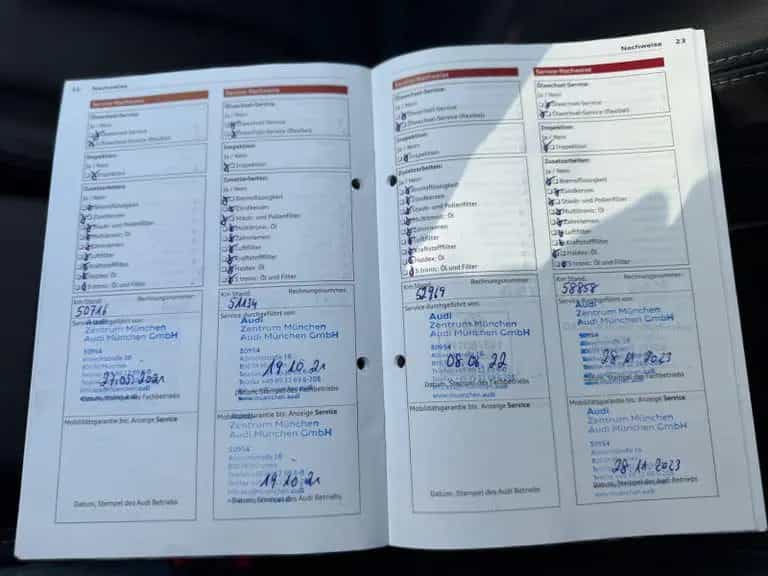 Nachweise
Service-Nachweise
Ölwechsel-Service:
Ja / Nein
Ölwechsel-Service
Ölwechsel-Service (flexibel)
Inspektion:
Ja / Nein
Inspektion
Zusatzarbeiten:
Ja / Nein
Bremsflüssigkeit
Zündkerzen
Staub- und Pollenfilter
Multitronic: Öl
Zahnriemen
Luftfilter
Kraftstofffilter
Haldex: Öl
S tronic: Öl und Filter
Km Stand:
Rechnungsnummer:
50716
Service durchgeführt von:
Audi
Zentrum München
Audi München GmbH
50954
27.05.2021
Datum, Stempel des Fachbetriebs
Mobilitätsgarantie bis: Anzeige Service
Datum, Stempel des Audi Betriebs
Service-Nachweise
Ölwechsel-Service:
Ja / Nein
Ölwechsel-Service
Ölwechsel-Service (flexibel)
Inspektion:
Ja / Nein
Inspektion
Zusatzarbeiten:
Ja / Nein
Bremsflüssigkeit
Zündkerzen
Staub- und Pollenfilter
Multitronic: Öl
Zahnriemen
Luftfilter
Kraftstofffilter
Haldex: Öl
S tronic: Öl und Filter
Km Stand:
Rechnungsnummer:
51134
Service durchgeführt von:
Audi
Zentrum München
Audi München GmbH
50954
19.10.21
Datum, Stempel des Fachbetriebs
Mobilitätsgarantie bis: Anzeige Service
Zentrum München
Audi München GmbH
50954
19.10.21
Datum, Stempel des Audi Betriebs
Nachweise 23
Service-Nachweise
Ölwechsel-Service:
Ja / Nein
Ölwechsel-Service
Ölwechsel-Service (flexibel)
Inspektion:
Ja / Nein
Inspektion
Zusatzarbeiten:
Ja / Nein
Bremsflüssigkeit
Zündkerzen
Staub- und Pollenfilter
Multitronic: Öl
Zahnriemen
Luftfilter
Kraftstofffilter
Haldex: Öl
S tronic: Öl und Filter
Km Stand:
Rechnungsnummer:
Service durchgeführt von:
Audi
Zentrum München
Audi München GmbH
50954
08.06.22
Datum, Stempel des Fachbetriebs
www.muenchen.audi
Mobilitätsgarantie bis: Anzeige Service
Datum, Stempel des Audi Betriebs
Service-Nachweise
Ölwechsel-Service:
Ja / Nein
Ölwechsel-Service
Ölwechsel-Service (flexibel)
Inspektion:
Ja / Nein
Inspektion
Zusatzarbeiten:
Ja / Nein
Bremsflüssigkeit
Zündkerzen
Staub- und Pollenfilter
Multitronic: Öl
Zahnriemen
Luftfilter
Kraftstofffilter
Haldex: Öl
S tronic: Öl und Filter
Km Stand:
Rechnungsnummer:
58858
Service durchgeführt von:
Zentrum München
Audi München GmbH
28.11.2023
Datum, Stempel des Fachbetriebs
Mobilitätsgarantie bis: Anzeige Service
Audi
Zentrum München
Audi München GmbH
50954
28.11.2023
Datum, Stempel des Audi Betriebs